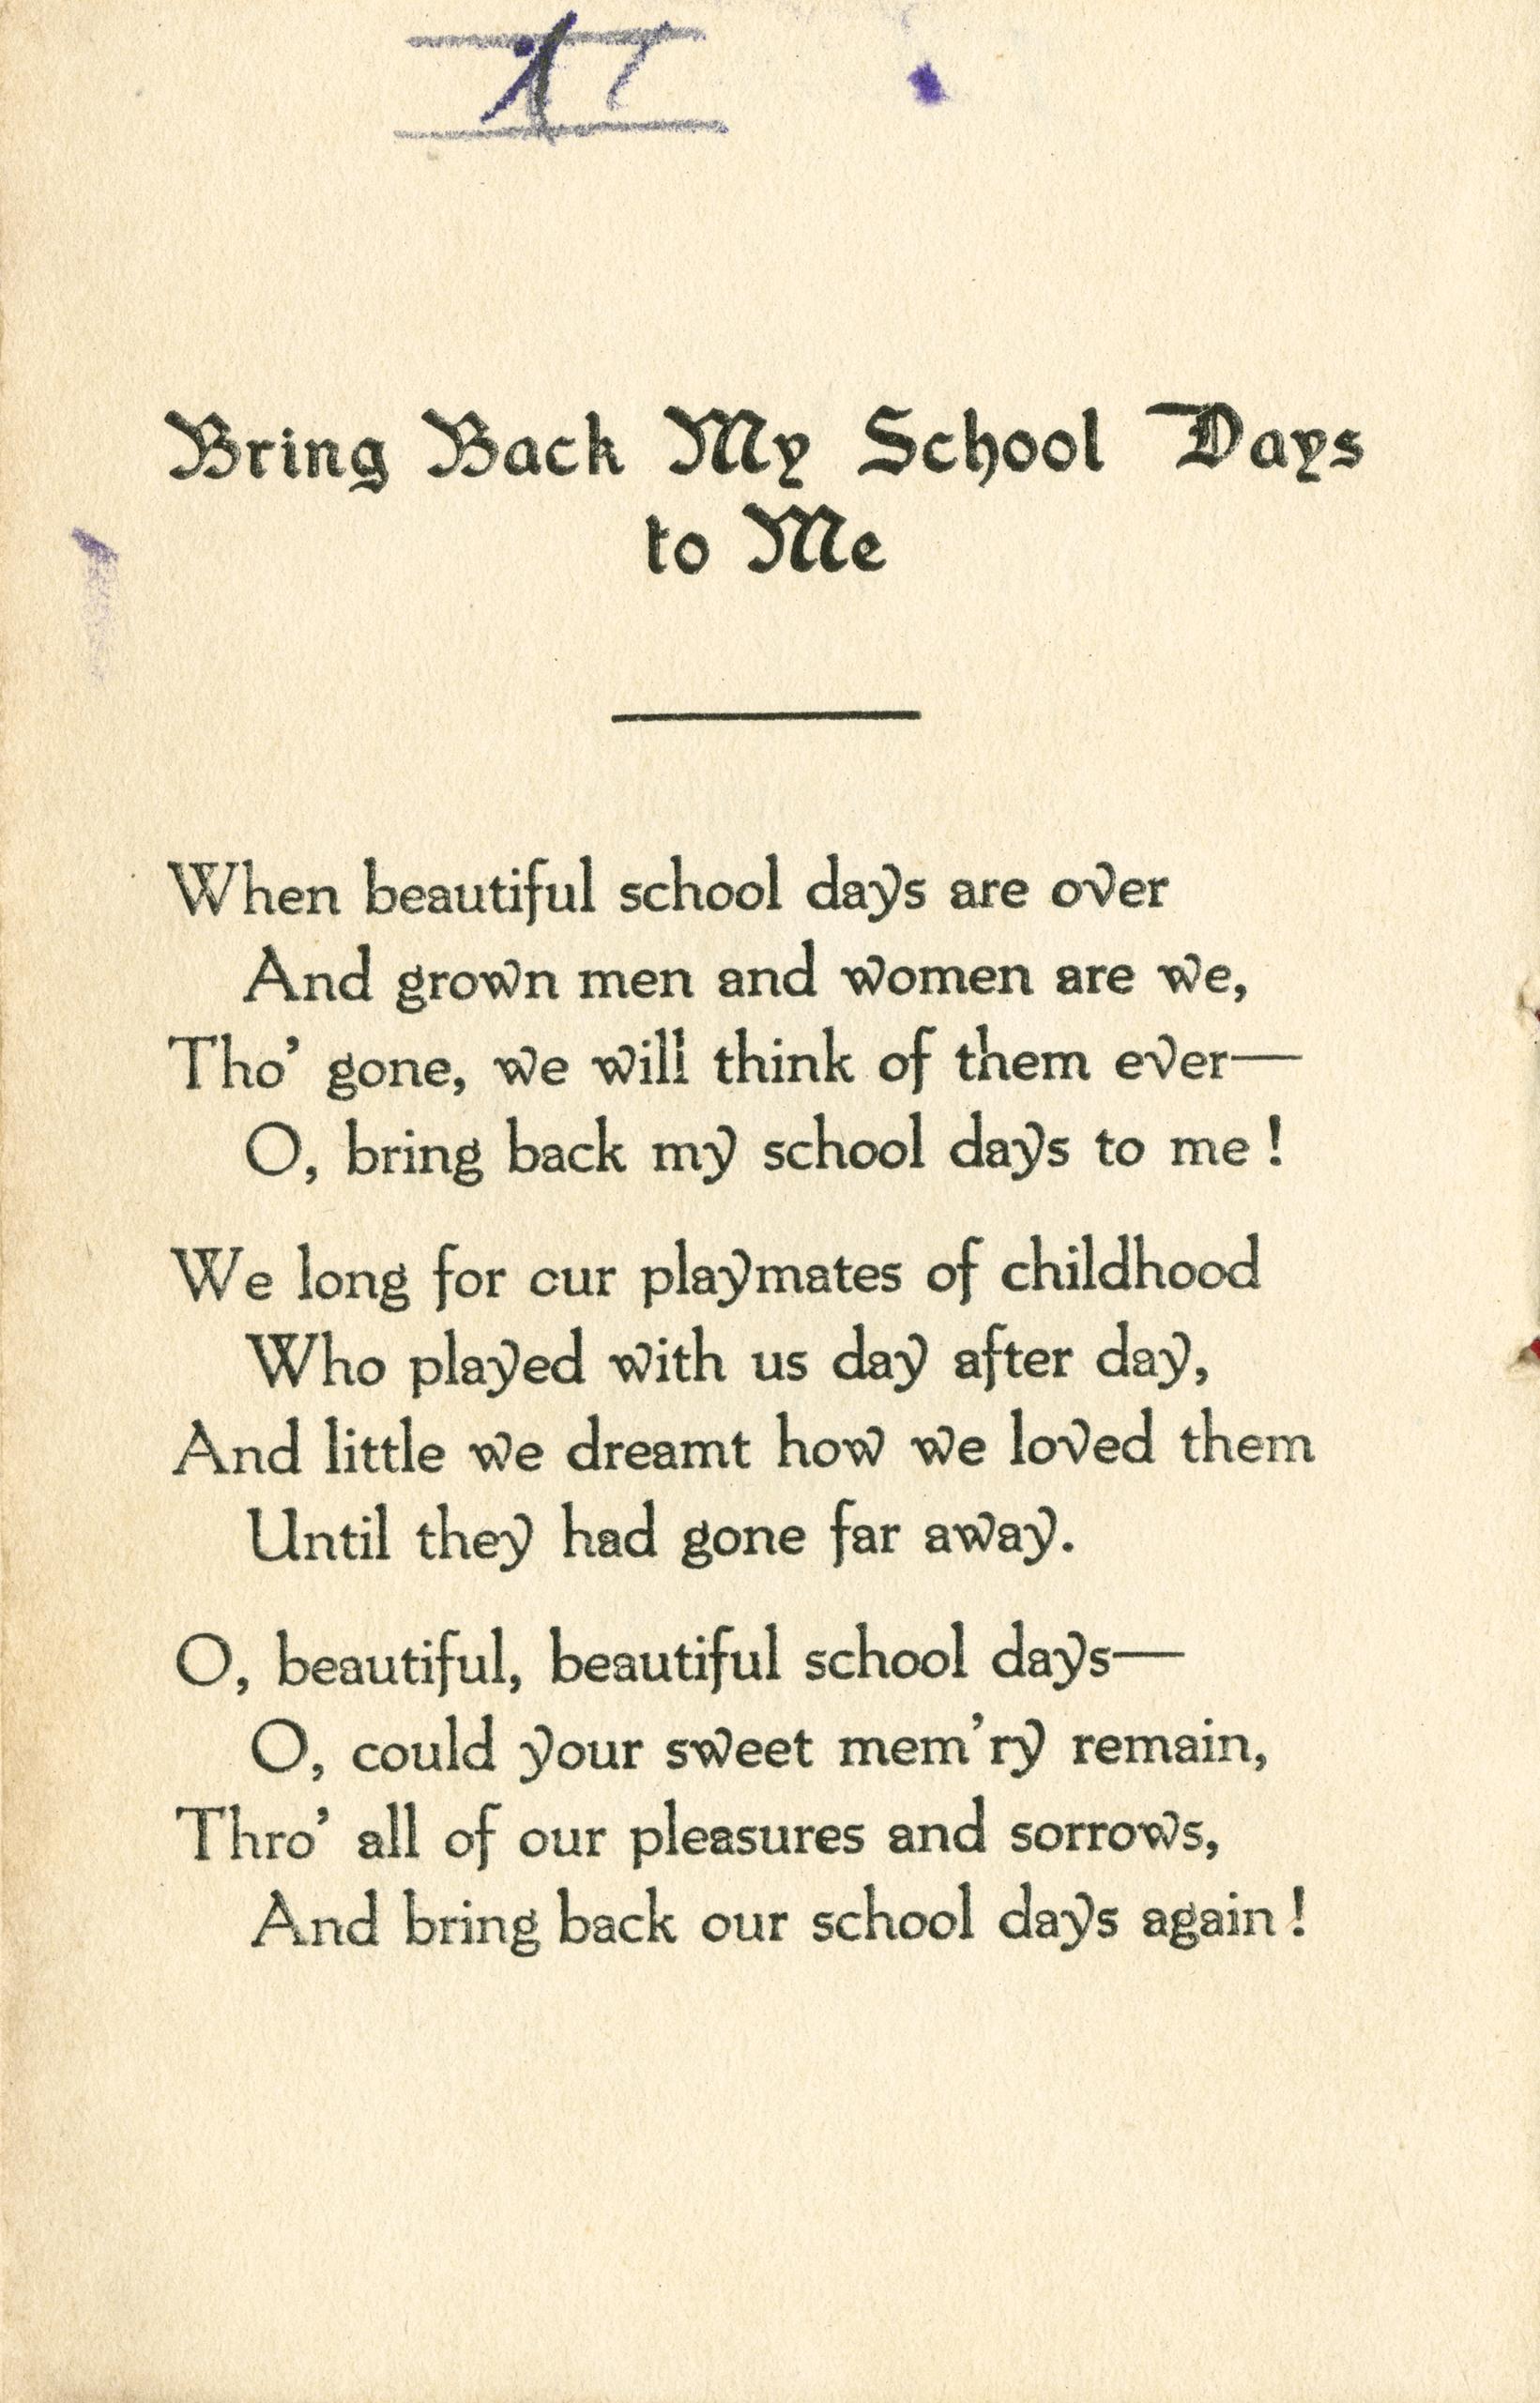 Bring Back My School Days
to Me
When beautiful school days are over
And grown men and women are we,
Tho' gone, we will think of them ever—
O, bring back my school days to me !
We long for our playmates of childhood
Who played with us day after day,
And little we dreamt how we loved them
Until they had gone far away.
O, beautiful, beautiful school days—
O, could your sweet mem'ry remain,
Thro' all of our pleasures and sorrows,
And bring back our school days again !